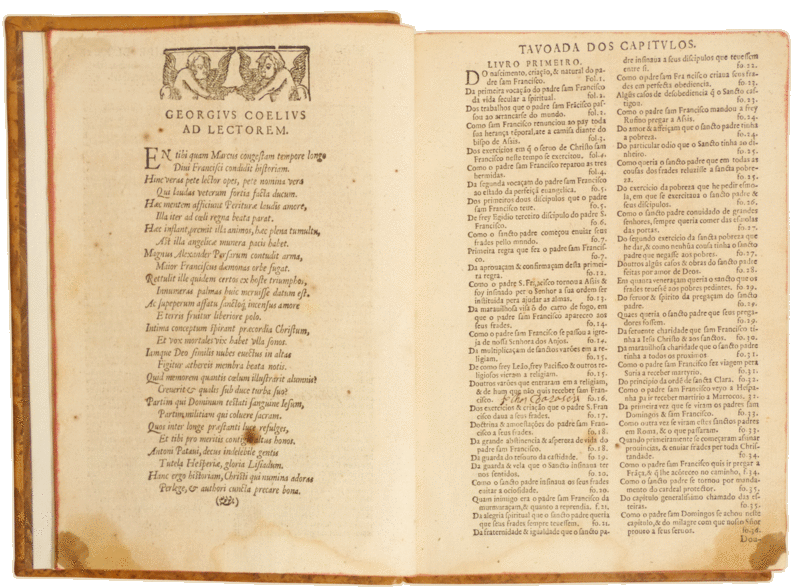 GEORGIVS COELIVS
AD LECTOREM.
EN tibi quam Marcus congestam tempore longo
Diui Francisci condidit historiam.
Hinc veras pete lector opes, pete nomina vera
Qui laudas veterum fortia facta ducum.
Hac mentem afficiunt Periturae laudis amore,
Illa iter ad coeli regna beata parat.
Haec inflant, premit illa animos, haec plena tumultu,
Ast illa angelicae munera pacis habet.
Magnus Alexander Persarum contudit arma,
Maior Franciscus daemonas orbe fugat.
Rettulit ille quidem certos ex hoste triumphos,
Innumeras palmas huic meruisse datum est.
Ac superum afflatu sanctoq́; incensus amore
E terris fruitur liberiore polo.
Intima conceptum spirant praecordia Christum,
Et vox mortales vix habet vlla sonos.
Iamque Deo similis nubes euectus in altas
Figitur aethereis membra beata notis.
Quid memorem quantis coelum illustrarit alumnis?
Creuerit & qualis sub duce turba suo?
Partim qui Dominum testati sanguine Iesum,
Partim, militiam qui coluere sacram.
Quos inter longe praestanti luce refulges,
Et tibi pro meritis honos.
Antoni Pataui, decus indelebile gentis
Tutela Hesperiae, gloria Lisiadum.
Hanc ergo historiam, Christi qui numina adoras
Perlege, & authori cuncta precare bona.
TAVOADA DOS CAPITVLOS.
LIVRO PRIMEIRO.
DO nascimento, criação, & natural do padre
sam Francisco. Fol. 1.
Da primeira vocação do padre sam Francisco
da vida secular a spiritual. fol. 2.
Dos trabalhos que o padre sam Frãcisco passou
ao arrancarse do mundo. fol. 2.
Como sam Francisco renunciou ao pay toda
sua herança tẽporal, ate a camisa diante do
bispo de Assis. fol. 3.
Dos exercicios em q̃ o seruo de Christo sam
Francisco neste tempo se exercitou. fol. 4.
Como o padre sam Francisco reparou as tres
hermidas. fol. 4.
Da segunda vocaçam do padre sam Francisco
ao estado da perfeiçã euangelica. fo. 5.
Dos primeiros dous discipulos que o padre
sam Francisco teue. fo. 5.
De frey Egidio terceiro discipulo do padre S.
Francisco. fo. 6.
Como o sancto padre começou enuiar seus
frades pello mundo. fo. 7.
Primeira regra que fez o padre sam Francisco.
fo. 7.
Da aprouaçam & confirmaçam desta primeira
regra. fo. 12.
Como o padre S. Frãcisco tornou a Assis &
foy insinado per o Senhor a sua ordem ser
instituida pera ajudar as almas. fo. 13.
Da marauilhosa visã õ do carro de fogo, em
que o padre sam Francisco apareceo aos
seus frades. fo. 14.
Como o padre sam Francisco se passou a igreja
de nossa Senhora dos Anjos. fo. 14.
Da multiplicaçam de sanctos varões em a religiam.
fo. 15.
De como frey Leão, frey Pacifico & outros religiosos
vieram a religiam. fo. 15.
Doutros varões que entraram em a religiam,
& de hum que não quis receber sam Francisco.
fo. 16.
Dos exercicios & criação que o padre S. Francisco
daua a seus frades. fo. 17.
Doctrina & amoestações do padre sam Francisco
a seus frades. fo. 18.
Da grande abstinencia & aspereza de vida do
padre sam Francisco. fo. 18.
Da guarda do tesouro da castidade. fo. 19.
Da guarda & vela que o Sancto insinaua ter
nos sentidos. fo. 20.
Como o sancto padre insinaua os seus frades
euitar a ociosidade. fo. 20.
Quam inimigo era o padre sam Francisco da
mormoraçam, & quanto a reprendia. f. 21.
Da alegria spiritual que o sancto padre queria
que seus frades sempre teuessem. fo. 21.
Da fraternidade & igualdade que o sancto padre
insinaua a seus discipulos que teuessem
entre si. fo. 22.
Como o padre sam Francisco criaua seus frades
em perfecta obediencia. fo. 23.
Algũs casos de desobediencia q̃ o Sancto castigou.
fo. 23.
Como o padre sam Francisco mandou a frey
Rufino pregar a Assis. fo. 24.
Do amor & affeiçam que o sancto padre tinha
a pobreza. fo. 24.
Do particular odio que o Sancto tinha ao dinheiro.
fo. 25.
Como queria o sancto padre que em todas as
cousas dos frades reluzisse a sancta pobreza.
fo. 25.
Do exercicio da pobreza que he pedir esmola,
em que se exercitaua o sancto padre &
seus discipulos. fo. 26.
Como o sancto padre conuidado de grandes
senhores, sempre queria comer das esmolas
das portas. fo. 27.
Do segundo exercicio da sancta pobreza que
he dar, & como nenhũa cousa tinha o sancto
padre que negasse aos pobres. fo. 27.
Doutros algũs casos & obras do sancto padre
feitas por amor de Deos. fo. 28.
Em quanta veneraçam queria o sancto que os
frades teuessẽ aos pobres pedintes. fo. 29.
Do feruor & spirito da pregaçam do sancto
padre. fo. 29.
Quaes queria o sancto padre que seus pregadores
fossem. fo. 29.
Da feruente charidade que sam Francisco tinha
a Iesu Christo & aos sanctos. fo. 30.
Da marauilhosa charidade que o sancto padre
tinha a todos os proximos fo. 31.
Como o padre sam Francisco fez viagem pera
Suria a receber martyrio. fo. 31.
Do principio da ordẽ de sancta Clara. fo. 32.
Como o padre sam Francisco veyo a Hespanha
pa ir receber martirio a Marrocos. fo. 31.
Da primeira vez que se viram os padres sam
Domingos & sam Francisco. fo. 33.
Como outra vez se viram estes sanctos padres
em Roma, & o que passaram. fo. 33.
Quando primeiramente se começaram assinar
prouincias, & enuiar frades por toda Christandade.
fo. 34.
Como o padre sam Francisco quis ir pregar a
Frãça, & q̃ lhe acõteceo no caminho. f. 34.
Como o padre sam Francisco se tornou por mandamento
do cardeal protector. fo. 35.
Do capitulo generalissimo chamado das esteiras.
fo. 35.
Como o padre sam Domingos se achou neste
capitulo, & do milagre com que nosso Sñor
proueo a seus seruos. fo. 36.
Dou-